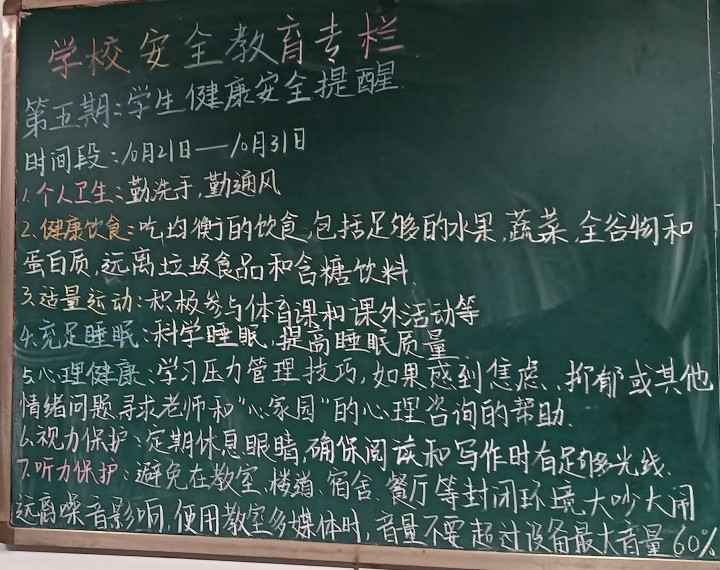 学校安全教育专栏
第五期:学生健康安全提醒
时间段:10月21日——10月31日
1.个人卫生:勤洗手,勤通风
2.健康饮食:吃均衡的饮食,包括足够的水果,蔬菜,全谷物和
蛋白质,远离垃圾食品和含糖饮料
3.适量运动:积极参与体育课和课外活动等
4.充足睡眠:科学睡眠,提高睡眠质量
5.心理健康:学习压力管理技巧,如果感到焦虑、抑郁或其他
情绪问题寻求老师和“心家园”的心理咨询的帮助.
6.视力保护:定期休息眼睛,确保阅读和写作时有足够光线.
7.听力保护:避免在教室,楼道,宿舍,餐厅等封闭环境大吵大闹
远离噪音影响,使用教室多媒体时,音量不要超过设备最大音量60%